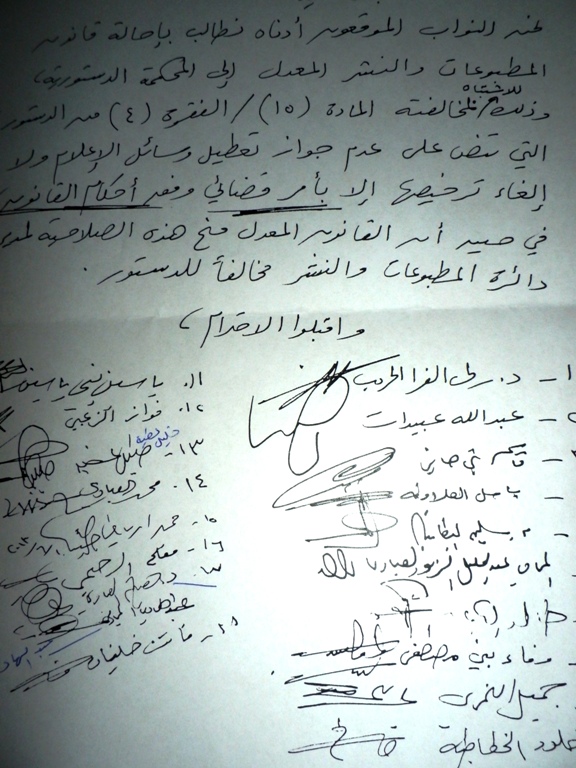 نحن النواب الموقعون أدناه نطالب بإحالة قانون
المطبوعات والنشر المعدل إلى المحكمة الدستورية،
للاشتباه
وذلك لمخالفته المادة (١٥) / الفقرة (٤) من الدستور
التي تنص على عدم جواز تعطيل وسائل الإعلام ولا
إلغاء ترخيصها إلا بأمر قضائي وفق أحكام القانون
في حين أن القانون المعدل منح هذه الصلاحية لمدير
دائرة المطبوعات والنشر مخالفاً للدستور.
واقبلوا الاحترام،
١- د. رلى الفرا الحروب
عبدالله عبيدات
قاسم بني هاني
باسل العلاونة
د. سليم البطاينة
وفاء بني مصطفى
جميل النمري
خلود الخطاطبة
١١. ياسين بني ياسين
١٢. فواز الزعبي
١٣- خليل عطية
خليل عطية
١٤- محمد العبادي
١٥-
١٦- مفلح الرحيمي
١٧-
١٨- فاتن خليفات